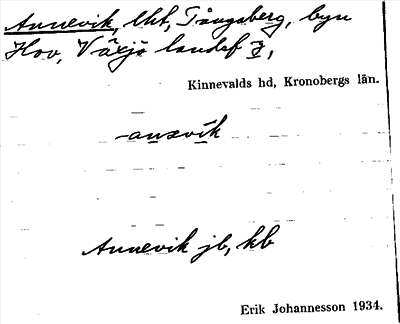 Annevik, lht, Tångsberg, byn
Hov, Växjö landsf 3,
Kinnevalds hd, Kronobergs län.
-anəvik
Annevik jb, kb
Erik Johannesson 1934.